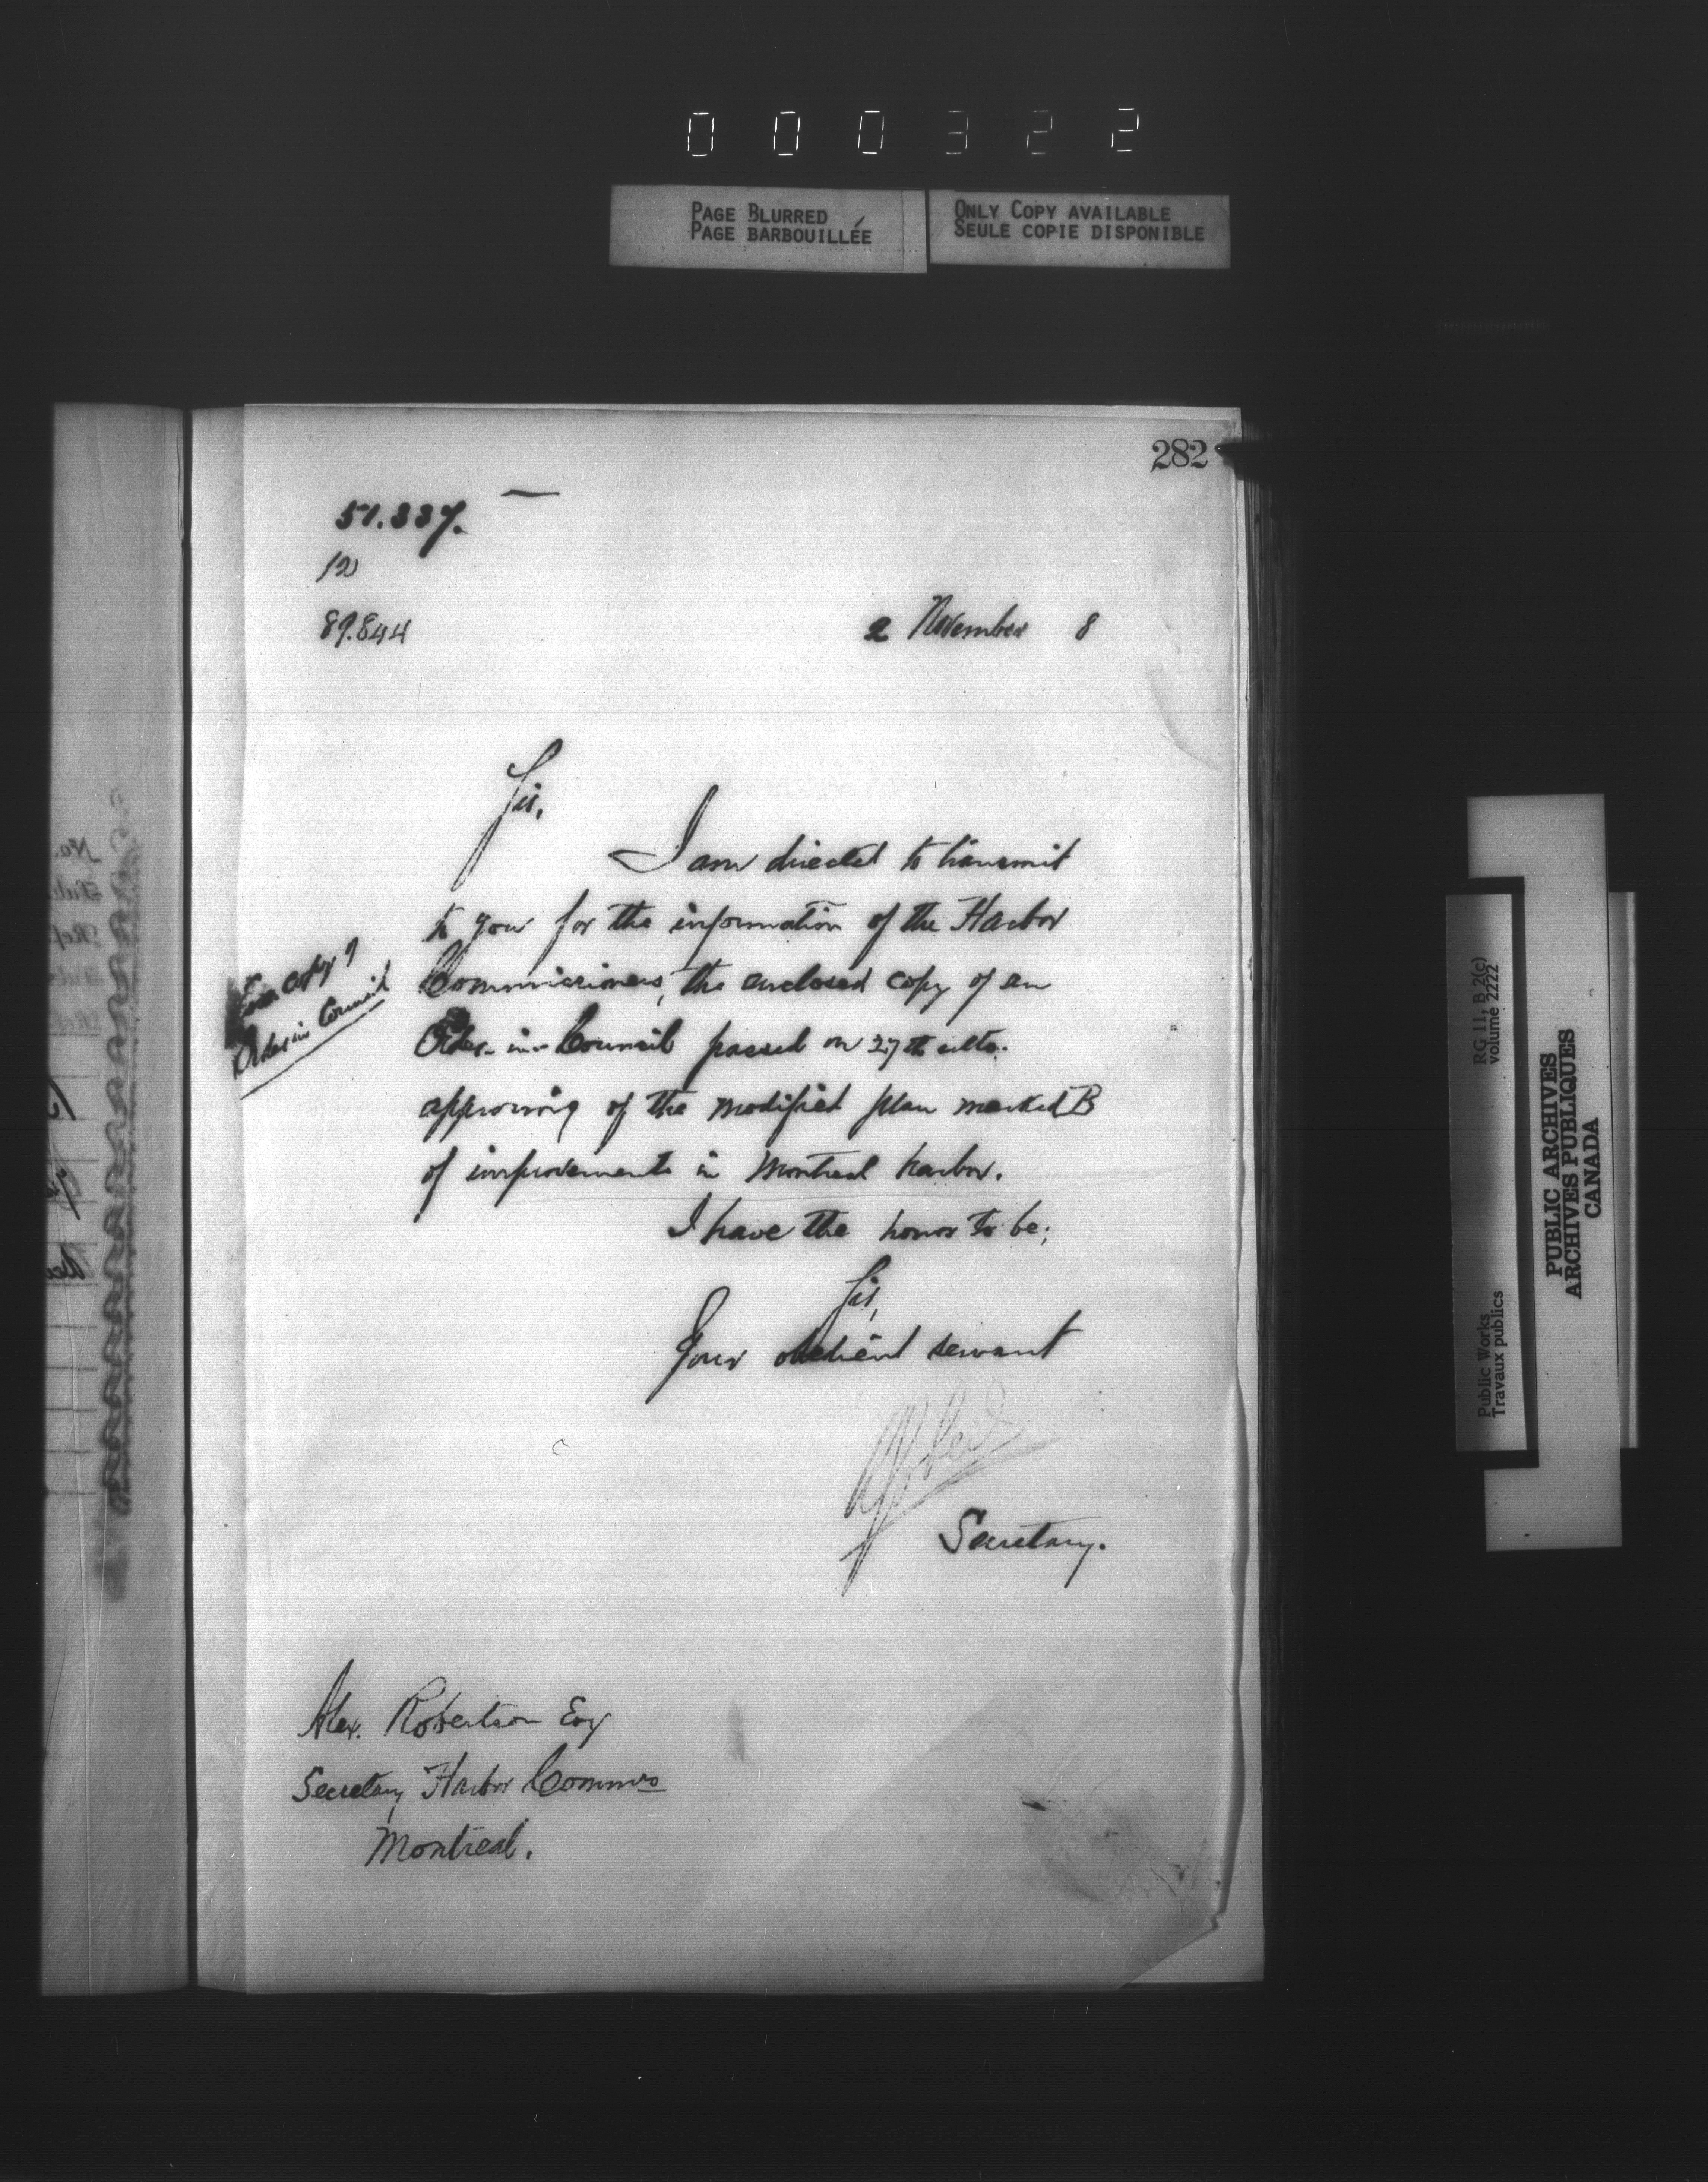 000322
PAGE BLURRED
PAGE BARBOUILLÉE
ONLY COPY AVAILABLE
SEULE COPIE DISPONIBLE
282
51.337.
12
89.844
2 November 8
Sir,
I am directed to transmit
to you for the information of the Harbor
Commissioners, the enclosed copy of an
Order-in-Council passed on 27th ulto.
approving of the modified plan marked B
of improvements in Montreal harbor.
I have the honor to be;
Sir,
Your obedient servant
Secretary.
copy of
Order in Council
Alex. Robertson Esq
Secretary Harbor Commrs
Montreal.
RG 11, B 2(c)
volume 2222
Public Works
Travaux publics
PUBLIC ARCHIVES
ARCHIVES PUBLIQUES
CANADA